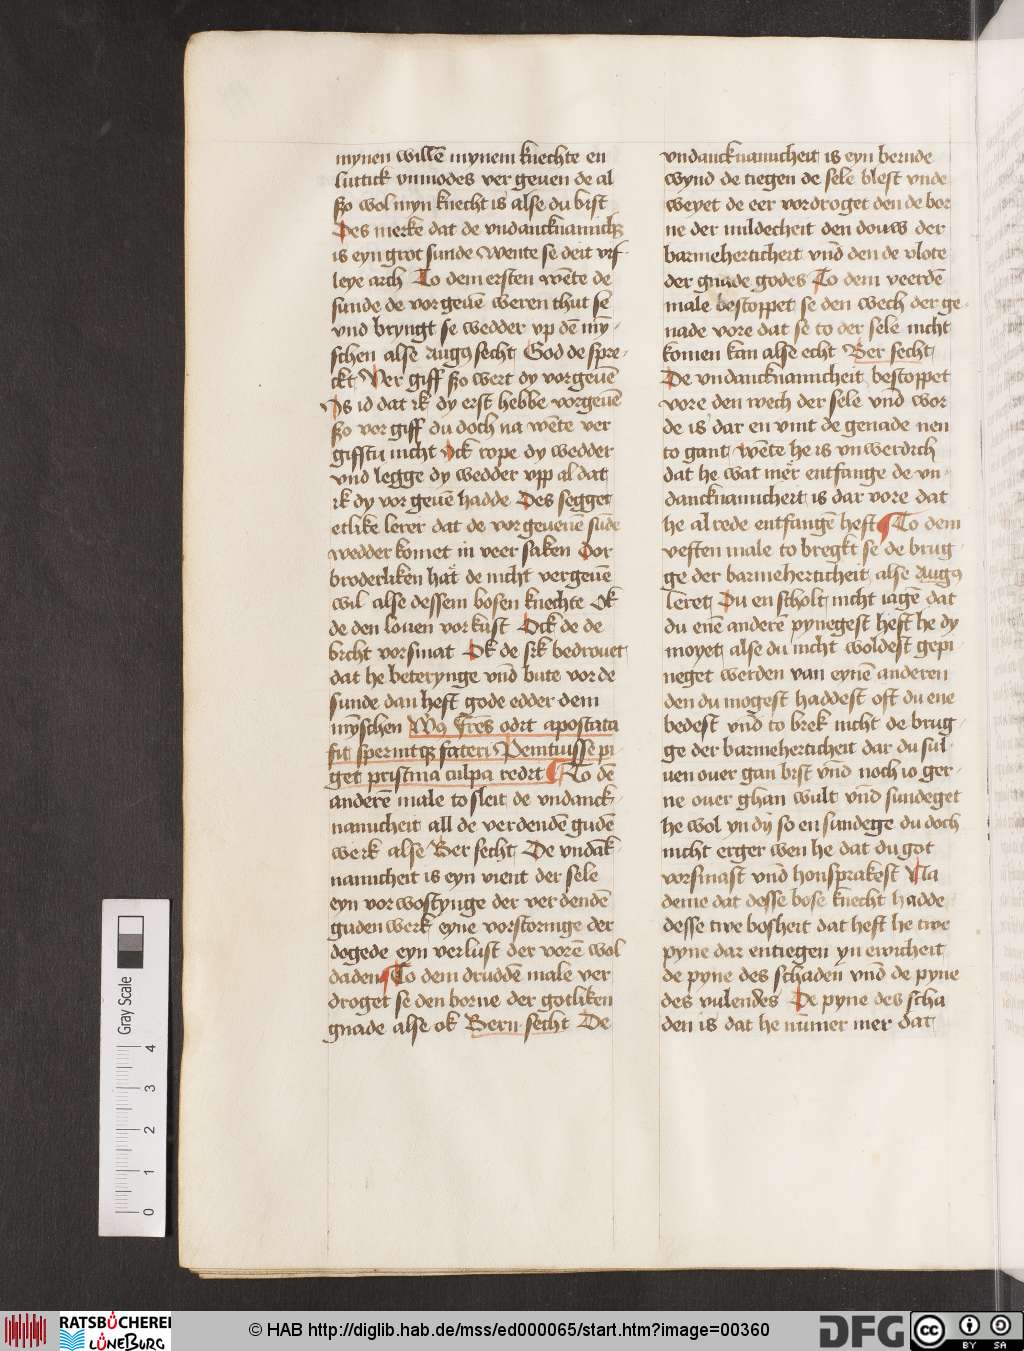 mynen willē mynem knechte en
luttick vnmodes ver geuen de al
szo wol myn knecht is alse du bist
Des merke dat de vndancknamich
is eyn grot sunde wente se deit vyf
leye arch To dem ersten wēte de
sunde de vorgeuē weren thut se
vnd bryngt se wedder vp dē my
schen alse Augus secht God de spre
ckt Ver giff szo wert dy vorgeuē
Vs id dat ik dy erst hebbe vorgeuē
szo vorgiff du doch na wēte ver
giffstu nicht Ick rope dy wedder
vnd legge dy wedder vpp al dat
ik dy vor geuē hadde Des segget
etlike lerer dat de vorgeuenē sūde
wedder komet in veer saken Dor
broderliken hat de nicht vergeuē
wil alse dessem bosen knechte Ok
de den louen vorkust Ock de de
bicht vorsmat Ok de sik bedrouet
dat he beterynge vnd bute vor de
sunde dan heft gode edder dem
myschen fres odit apostata
fit spernitq; fateri Penituisse pi
get pristina culpa redit To dē
anderē male to sleit de vndanck
namicheit all de verdendē gudē
werk alse Ber secht De vndāk
namicheit is eyn vient der sele
eyn vorwostynge der verdendē
guden werk eyne vorstoringe der
dogede eyn verlust der vorē wol
daden To dem druddē male ver
droget se den borne der gotliken
gnade alse ok Bern secht De
vndancknamicheit is eyn bernde
wynd de tiegen de sele blest vnde
weyet de eer vordroget den de bor
ne der mildecheit den douw der
barmeherticheit vnd den de vlote
der gnade godes To dem veerdē
male bestoppet se den wech der ge
nade vore dat se to der sele nicht
komen kan alse echt Ber secht
De vndancknamicheit bestoppet
vore den wech der sele vnd wor
de is dar en vint de genade nen
to gant wēte he is vnwerdich
dat he wat mer entfange de vn
dancknamicheit is dar vore dat
he alrede entfangē heft To dem
veften male to bregkt se de brug
ge der barmeherticheit alse Augus
leret Du en scholt nicht iagē dat
du enē anderē pynegest heft he dy
moyet alse du nicht woldest gepi
neget werden van eynē anderen
den du mogest haddest oft du ene
bedest vnd to brek nicht de brug
ge der barmeherticheit dar du sul
uen ouer gan bist vnd noch io ger
ne ouer ghan wult vnd sundeget
he wol yn dy so en sundege du doch
nicht erger wen he dat du got
vorsmast vnd honsprakest Na
deme dat desse bose knecht hadde
desse twe bosheit dat heft he twe
pyne dar entiegen yn ewicheit
de pyne des schaden vnd de pyne
des vulendes De pyne des scha
den is dat he nūmer mer dat
Gray Scale
4
3
2
1
0
RATSBÜCHEREI
LÜNEBURG
© HAB http://diglib.hab.de/mss/ed000065/start.htm?image=00360
DFG
cc
BY SA